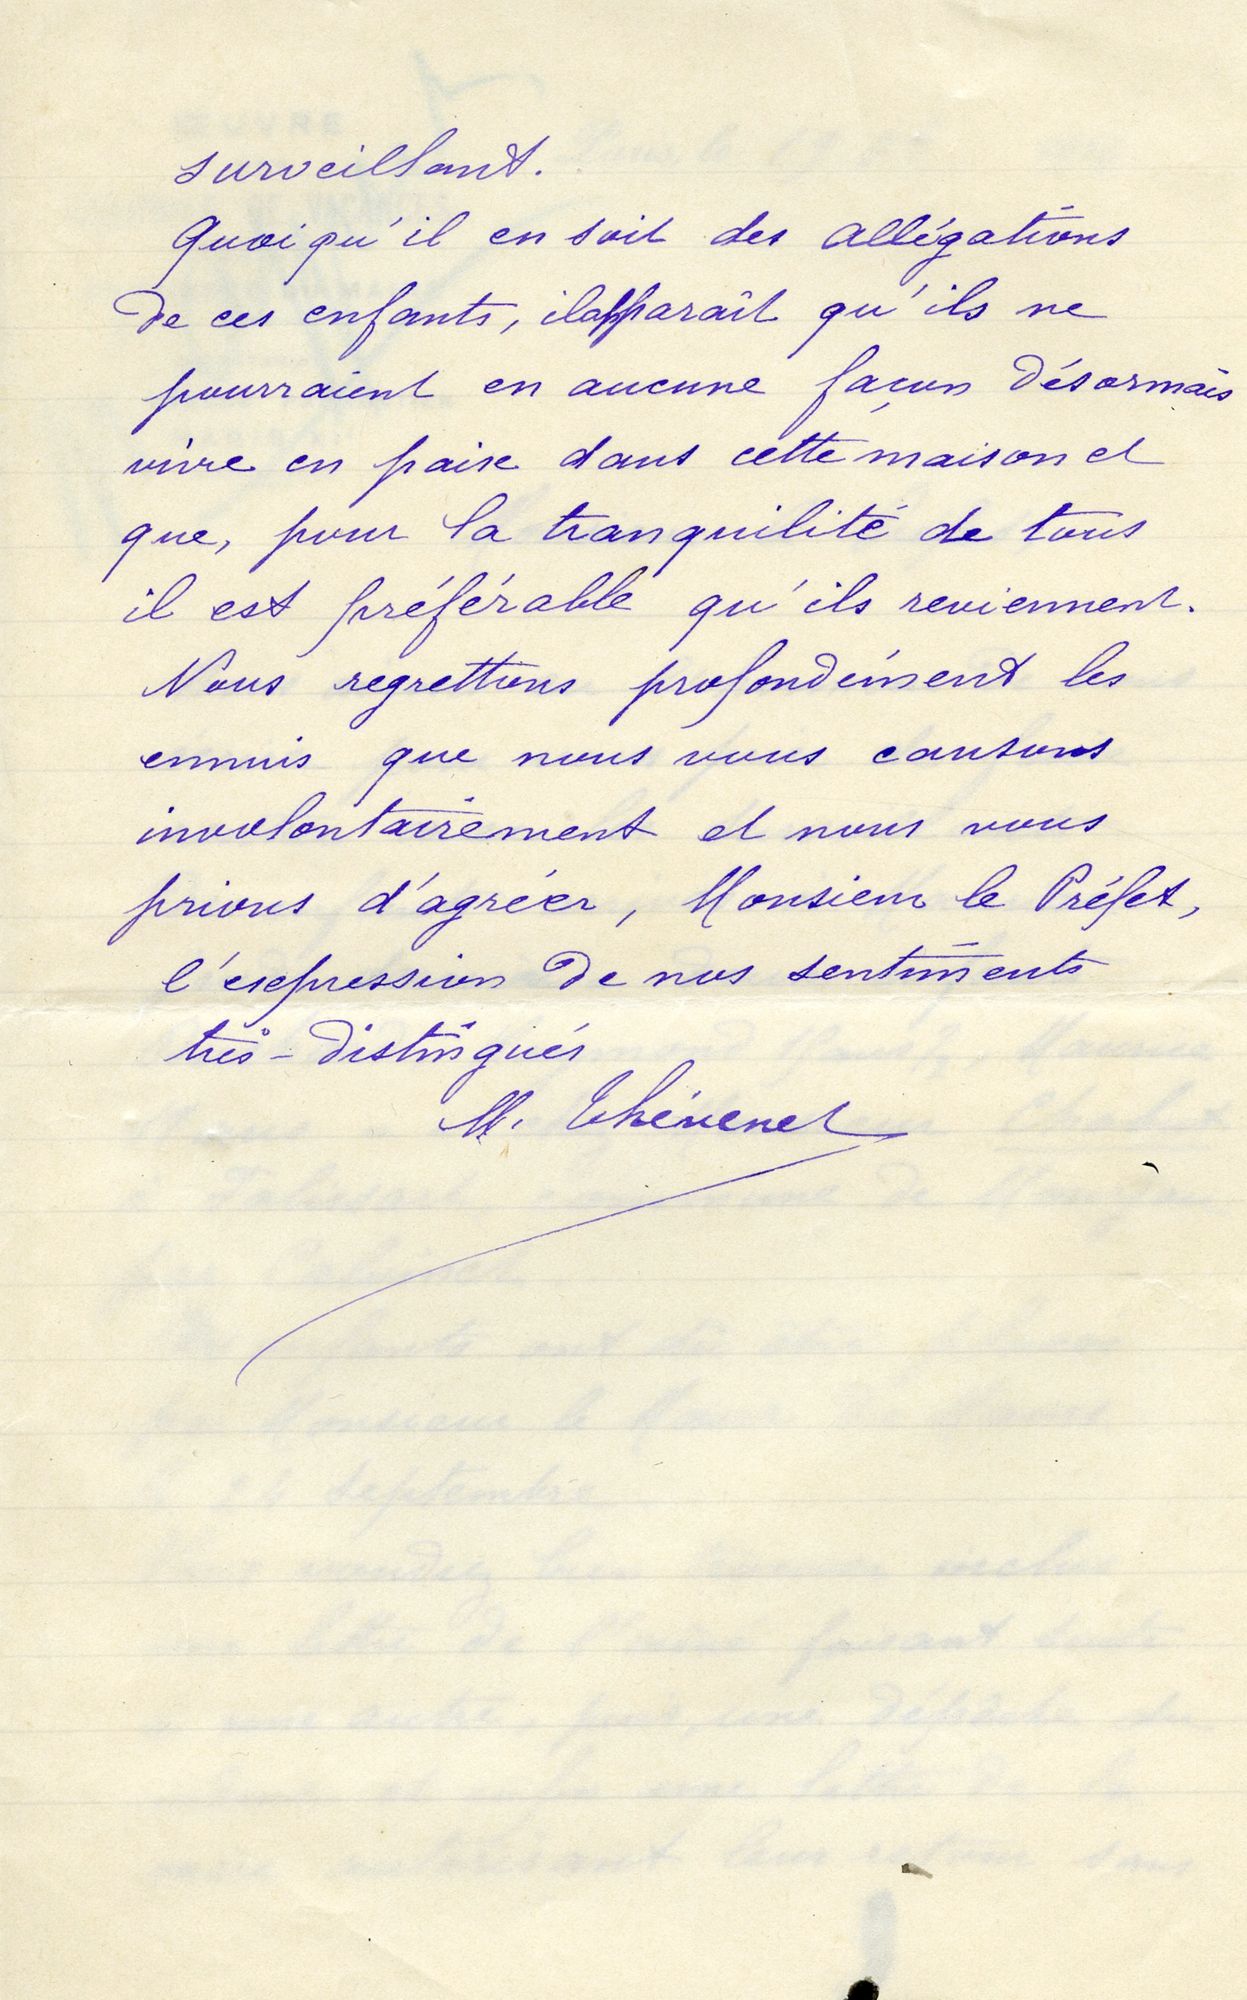 surveillant.
Quoiqu'il en soit des allégations
de ces enfants, il apparaît qu'ils ne
pourraient en aucune façon désormais
vivre en paix dans cette maison et
que, pour la tranquilité de tous
il est préférable qu'ils reviennent.
Nous regrettons profondément les
ennuis que nous vous causons
involontairement et nous vous
prions d'agréer, Monsieur le Préfet,
l'expression de nos sentiments
très-distingués
M. Thévenet